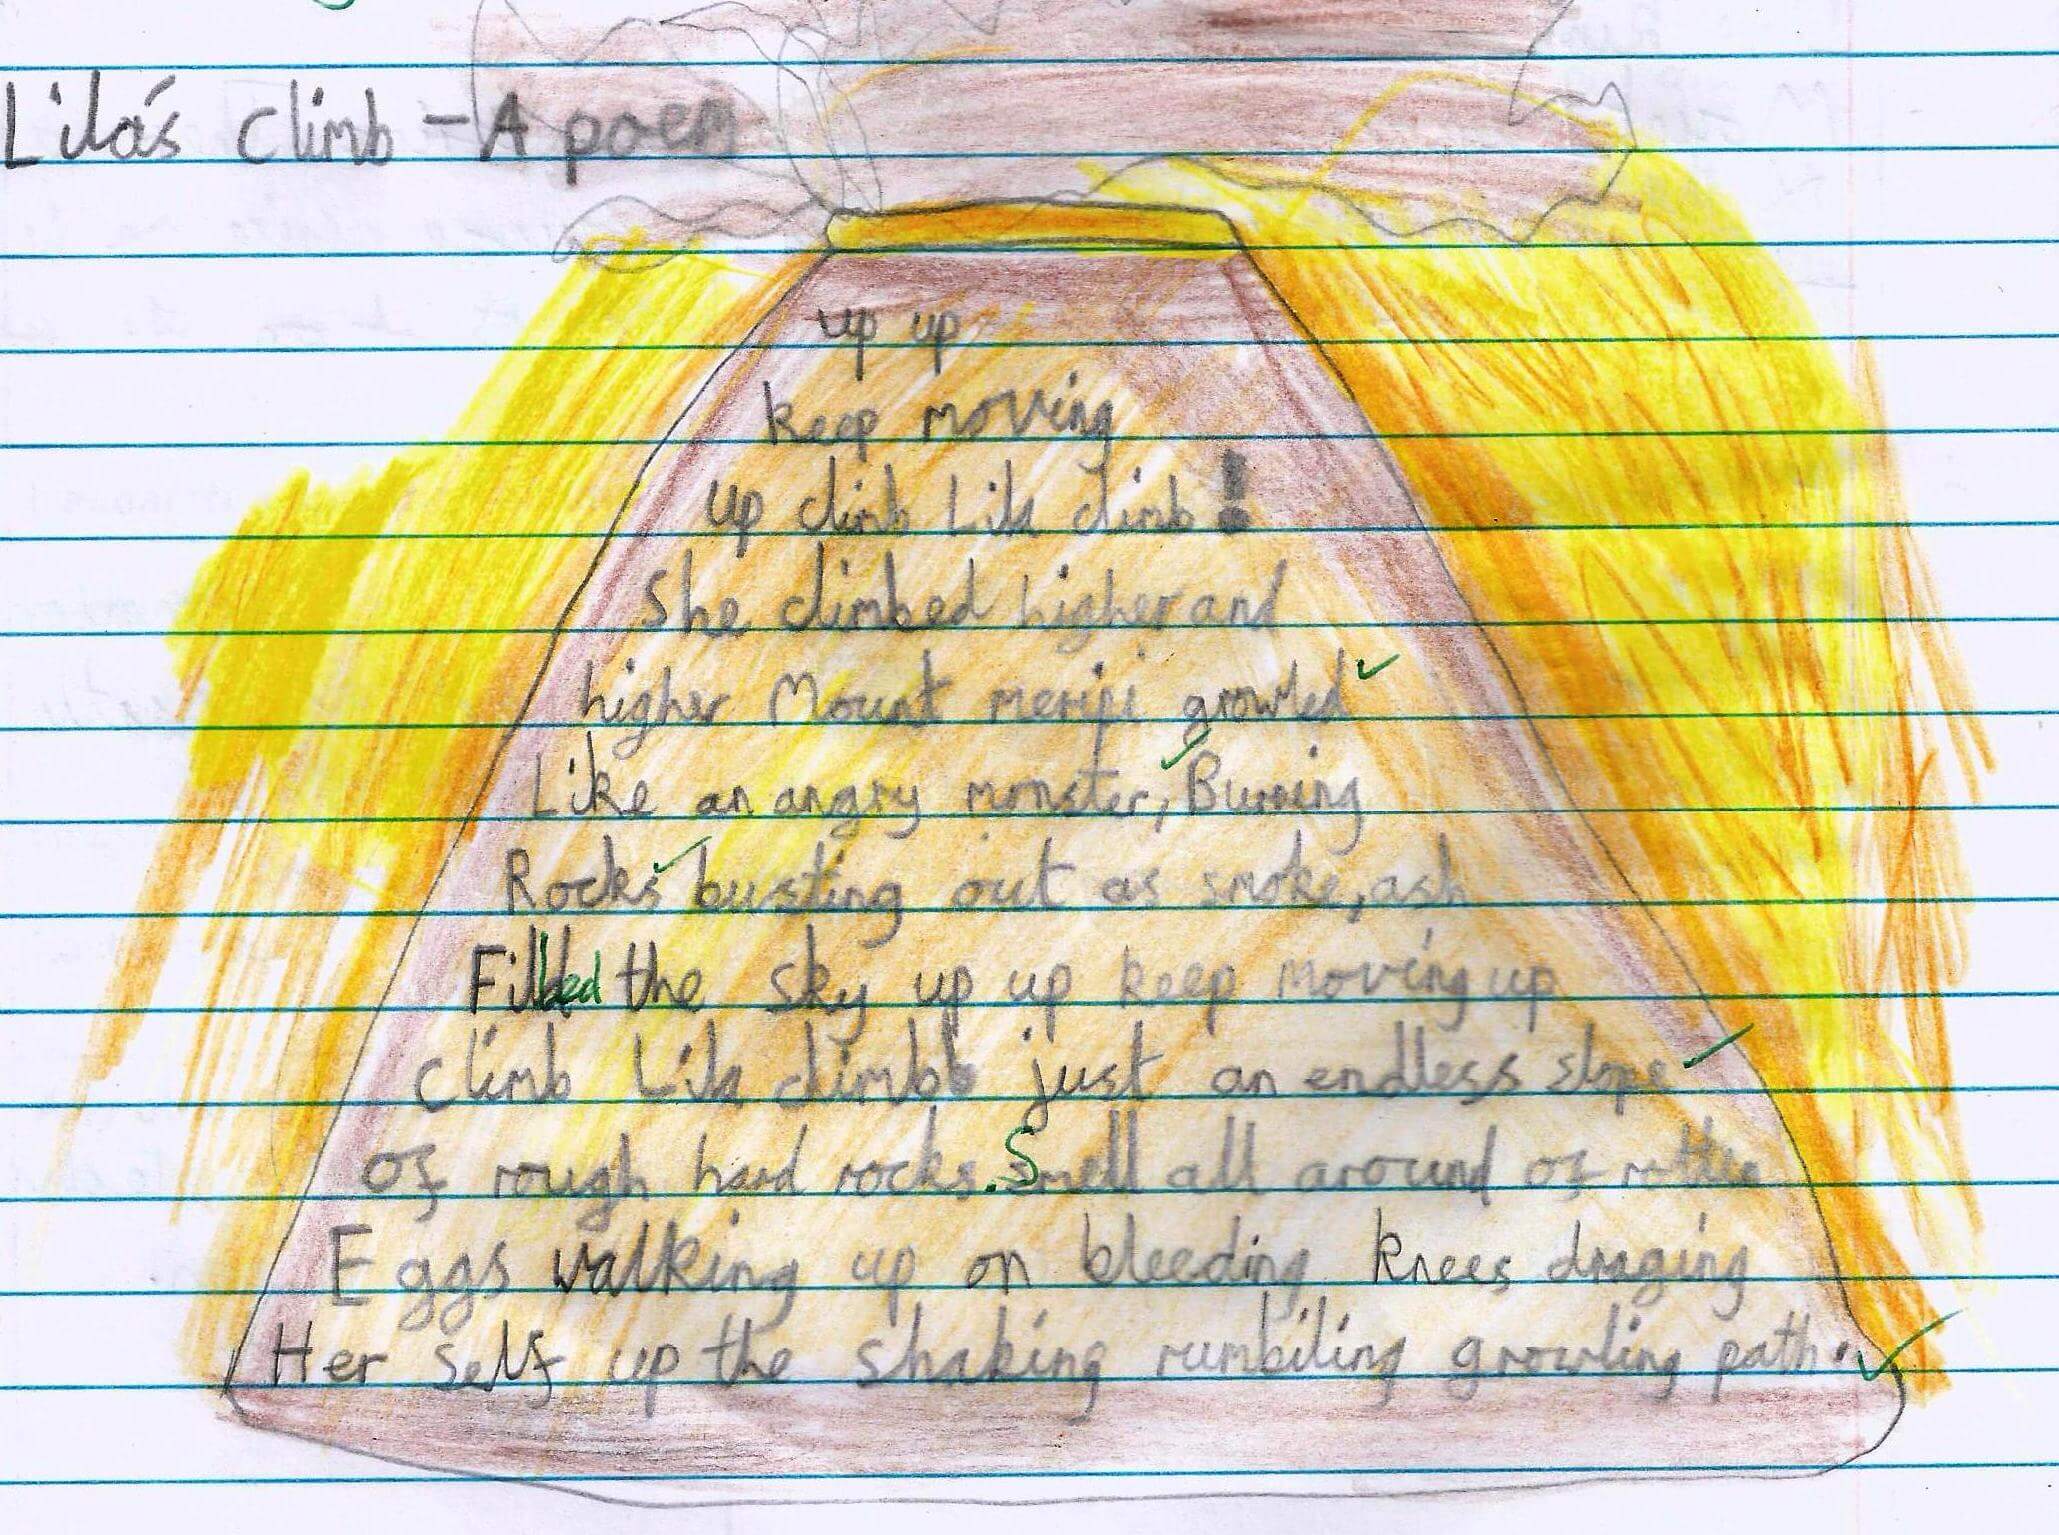 Lila's climb - A poem
up up
keep moving
up climb Lila climb!
She climbed higher and
higher Mount meripi growled
Like an angry monster, Burning
Rocks busting out as smoke, ash
Filled the sky up up keep moving up
climb Lila climb just an endless slope
of rough hard rocks. Smell all around of
Eggs walking up on bleeding knees draging
Her self up the shaking rumbiling growling path.